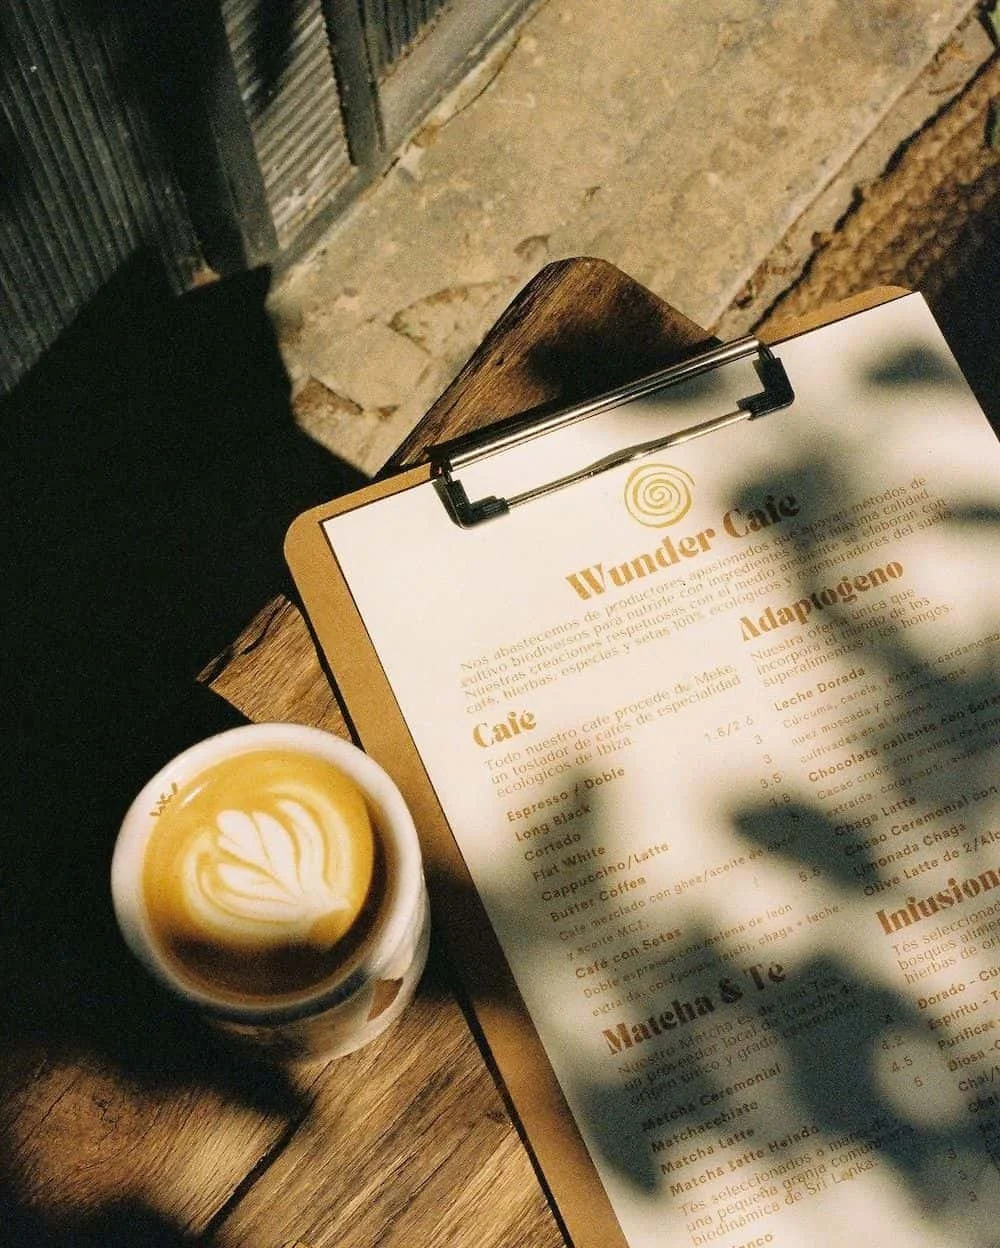 Wunder Café
Nos abastecemos de productores apasionados que apoyan métodos de
cultivo biodiversos para nutrirle con ingredientes de la máxima calidad.
Nuestras creaciones respetuosas con el medio ambiente se elaboran con
café, hierbas, especias y setas 100% ecológicos y regeneradores del suelo.
Café
Todo nuestro café procede de Meke,
un tostador de cafés de especialidad
ecológicos de Ibiza
Espresso / Doble 1.8/2.6
Long Black 3
Cortado 3
Flat White 3.5
Cappuccino/Latte 3.8
Butter Coffee 5.5
Café mezclado con ghee/aceite de coco
y aceite MCT.
Café con Setas
Doble espresso con melena de león
extraída, cordyceps, reishi, chaga + leche
Matcha & Té
Nuestro Matcha es de
un proveedor local de Matcha de
origen único y grado ceremonial
Matcha Ceremonial 4.2
Matcharcchiato 4.5
Matcha Latte 5
Matcha Latte Helado
Tés seleccionados a mano de
una pequeña granja comunitaria
biodinámica de Sri Lanka.
Adaptógeno
Nuestra oferta única que
incorpora el mundo de los
superalimentos y los hongos.
Leche Dorada
Cúrcuma, canela, jengibre, cardamomo
nuez moscada y pimienta negra
cultivadas en el bosque
Chocolate caliente con Setas
Cacao crudo con melena de león
extraída, cordyceps,
Chaga Latte
Cacao Ceremonial con
Limonada Chaga
Olive Latte de 2/Al
Infusion
Tés seleccionad
bosques alime
hierbas de or
Dorado - Cú
Espíritu - T
Purificar
Diosa - C
Chai/